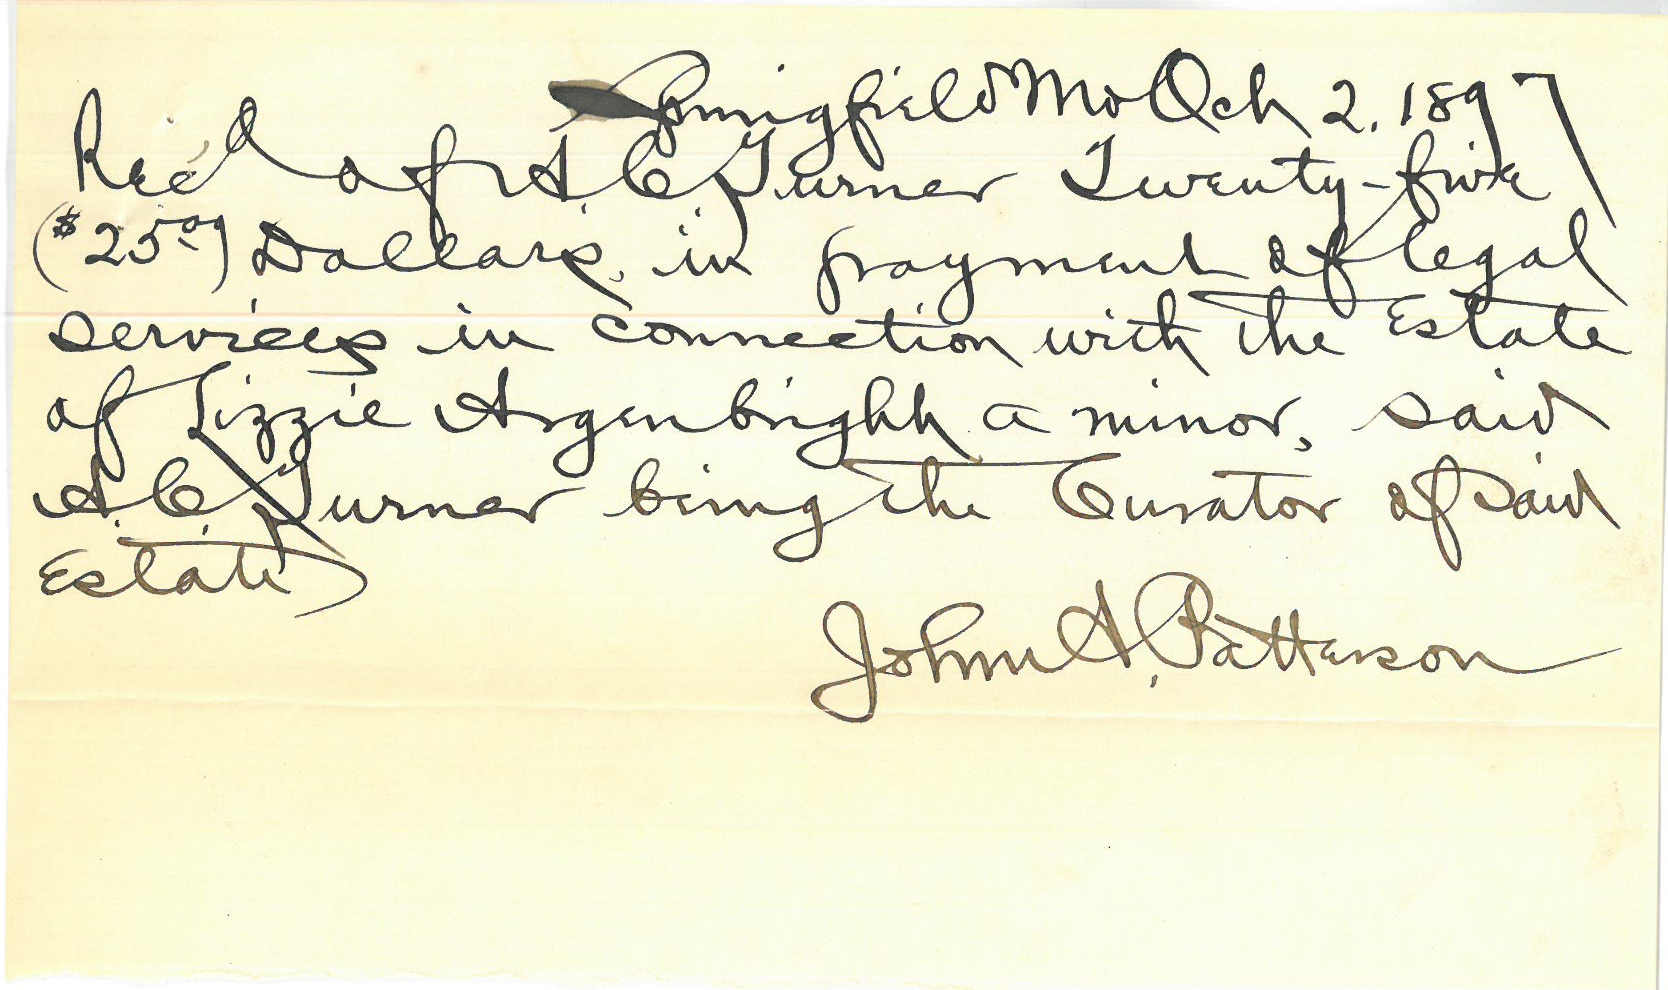 Springfield Mo Oct 2. 1897
Rec'd of A. C. Turner Twenty-five
($25.00) Dollars, in payment of legal
services in connection with the Estate
of Lizzie Argenbright a minor, said
A. C. Turner being the Curator of said
Estate
John A. Patterson